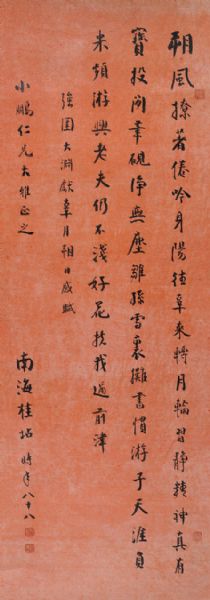 朔風撩著倦吟身陽復阜來轉月輪習靜精神真有
寶投閒筆硯淨無塵雖孫雪裏攤書慣游子天涯負
米頻游興老夫仍不淺好花扶我過前津
強圉大淵獻辜月朔日感賦
小鵬仁兄大雅正之
南海桂坫時年八十八